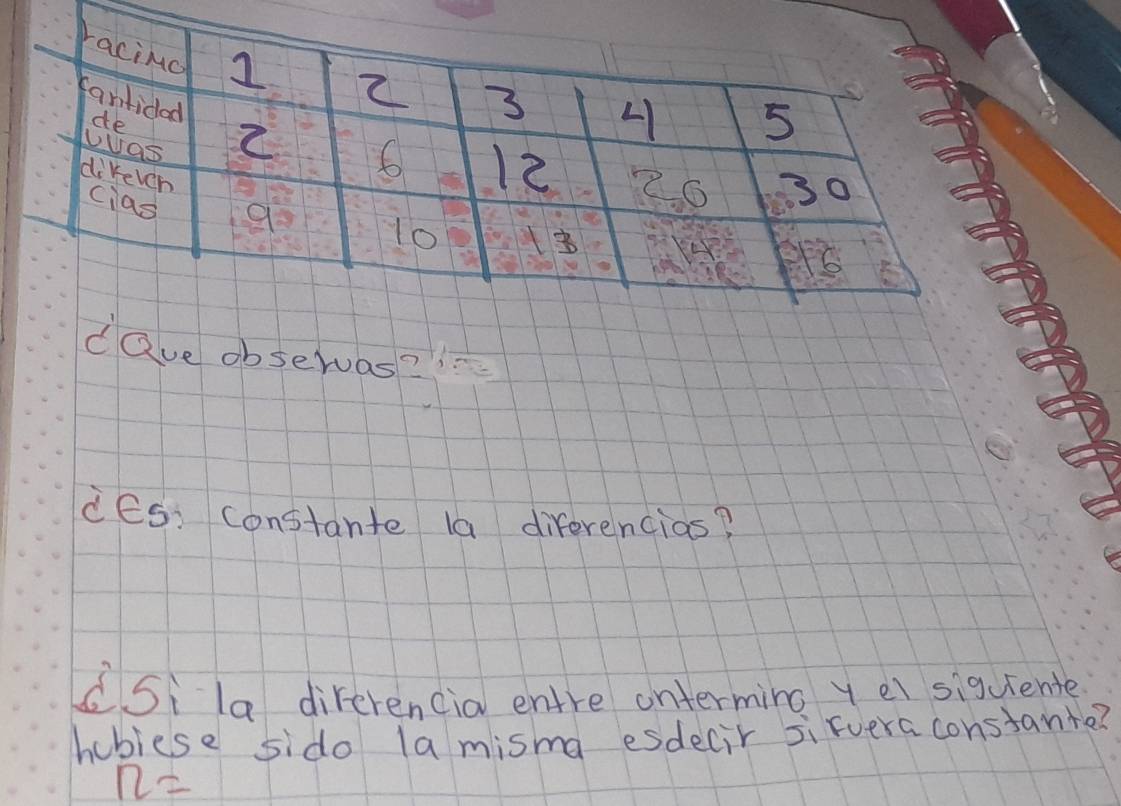 racimo 1 2 3 4 5
cantidad
de
uvas 2 6 12 20 30
diferen
cias 9 10 13 14 16
¿Que observas?
¿Es: constante la diferencias?
¿Si la diferencia entre untermino y el siguiente
hubiese sido la misma esdecir si fuera constante?
n=